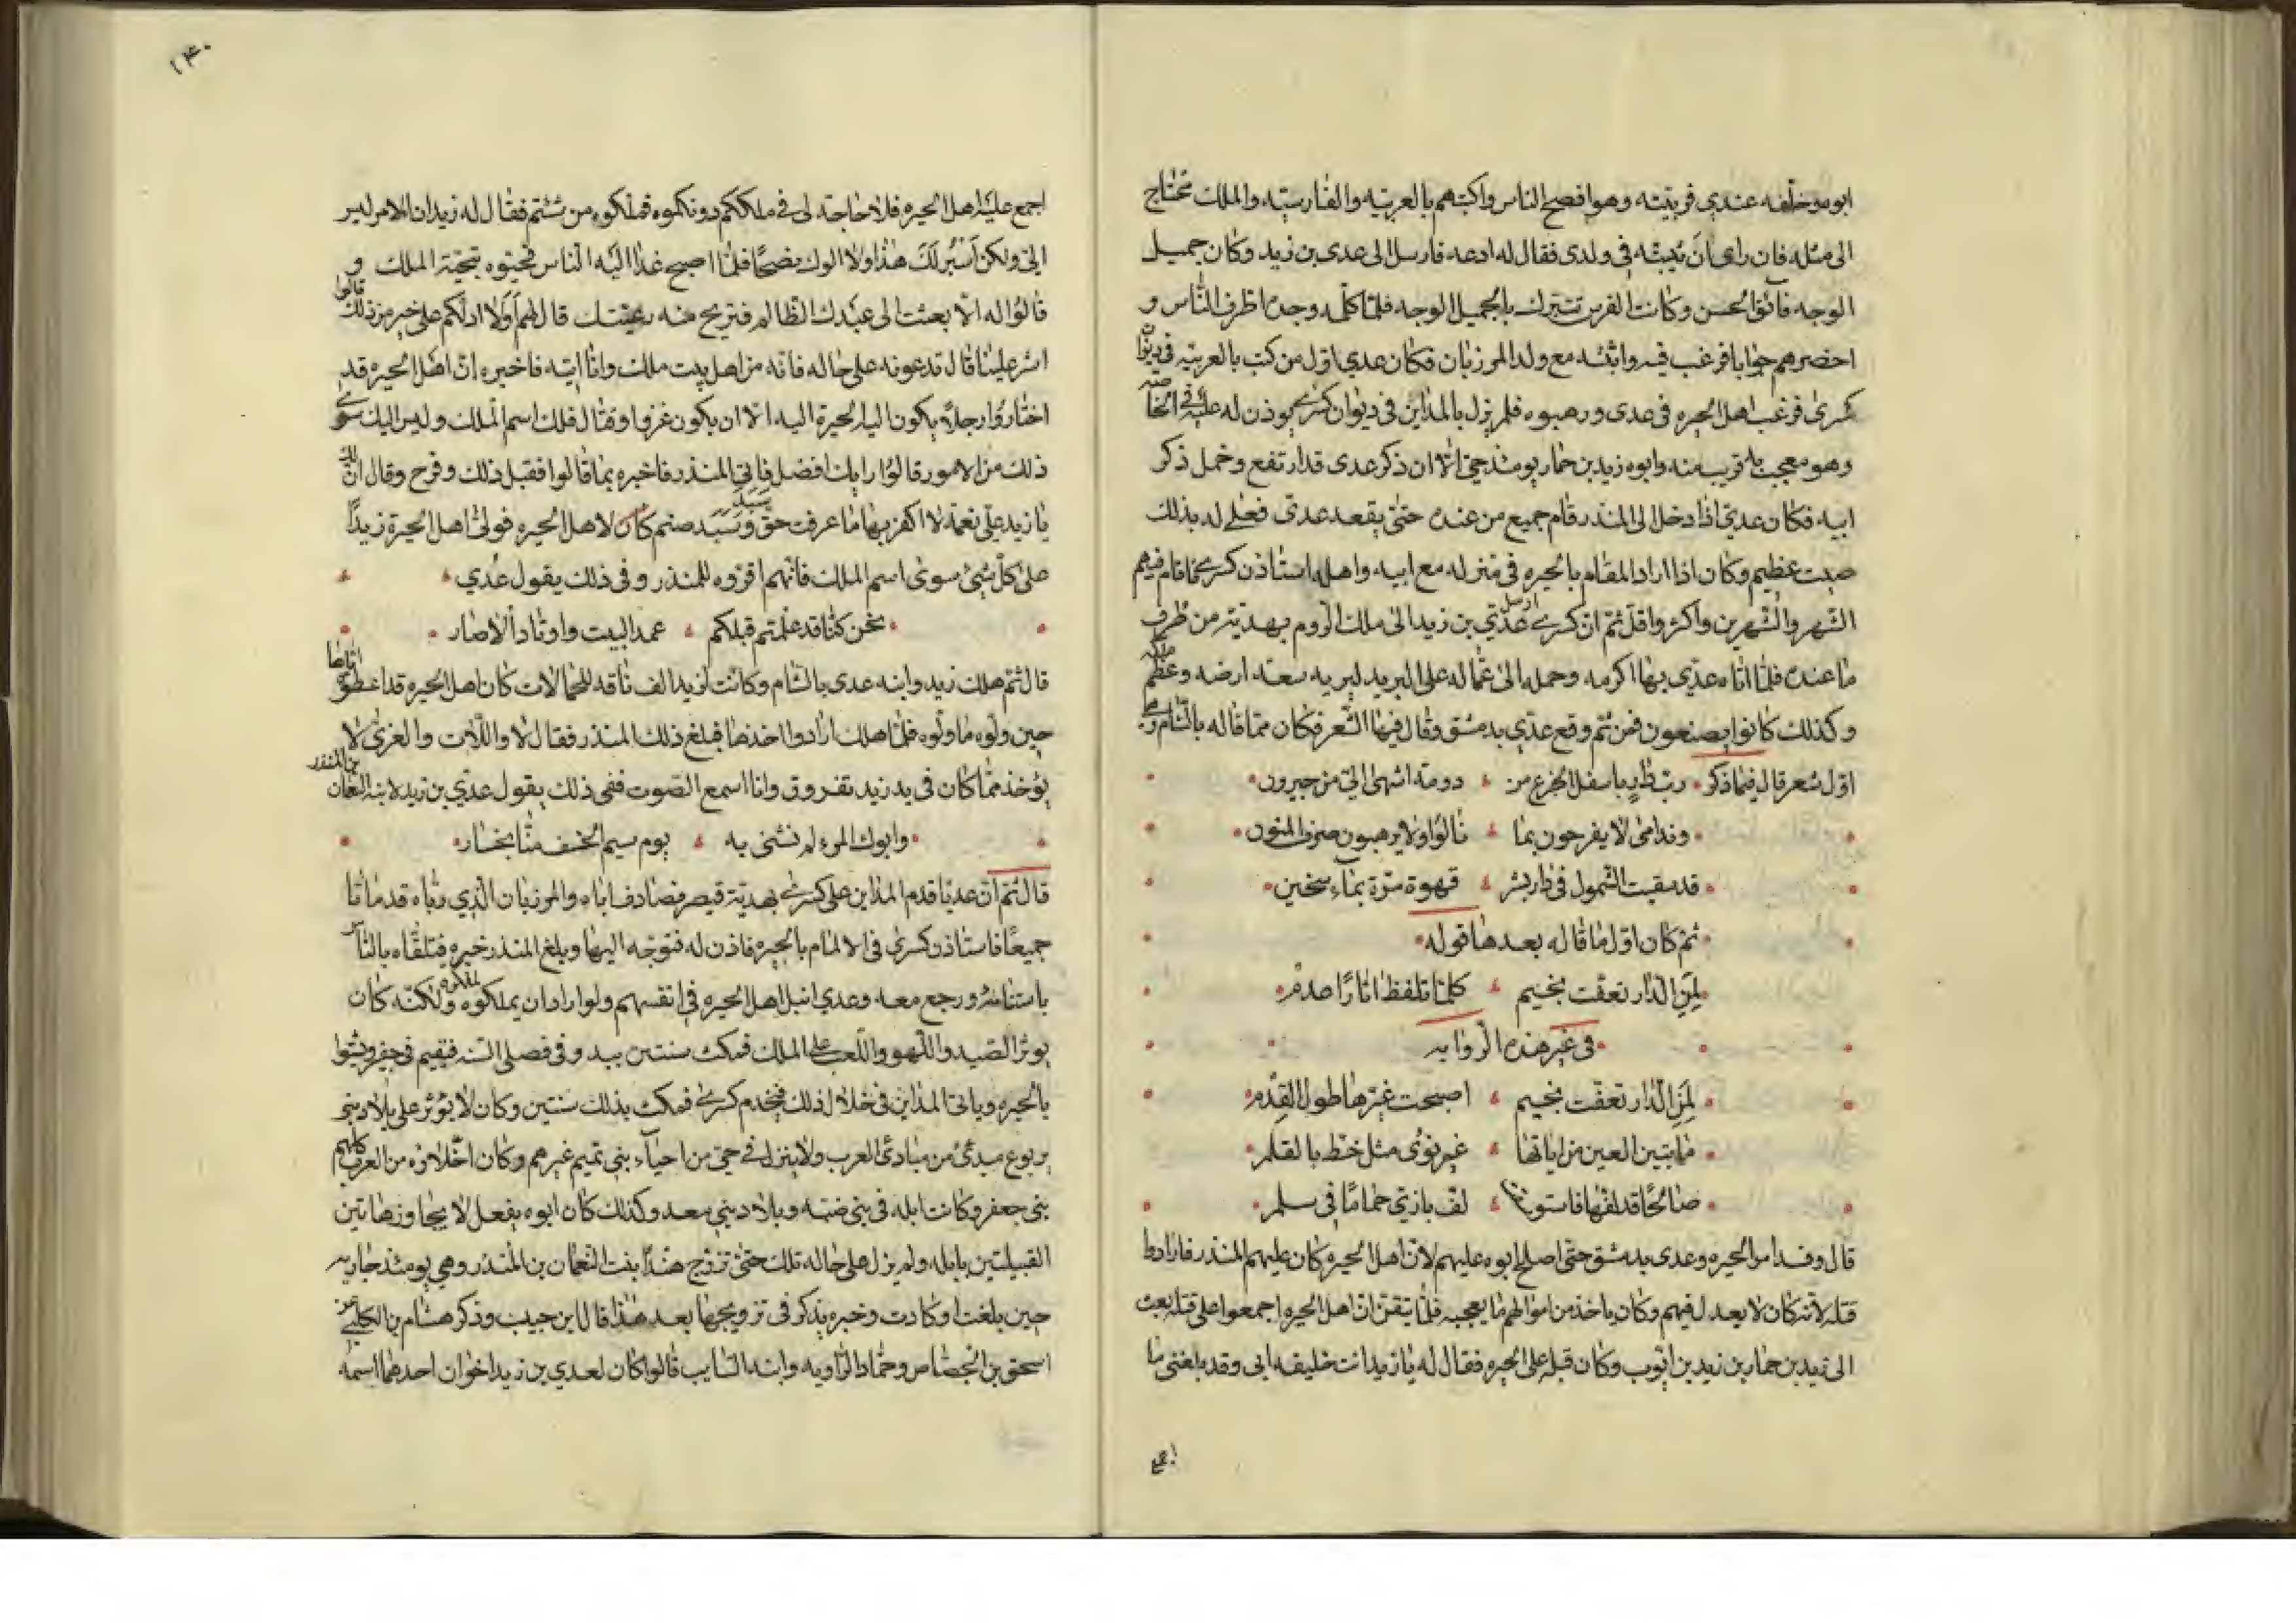 ابوه وخلفه عندي فربيته وهو افصح الناس واكتبهم بالعربيه والفارسيه والملك محتاج
الى مثله فان راى ان يثبته في ولدى فقال له ادعه فارسل الى عدى بن زيد وكان جميل
الوجه فائق الحسن وكانت الفرس تتبرك بالجميل الوجه فلما كلمه وجده اظرف الناس و
احضرهم جوابا فرغب فيه واثبته مع ولد المرزبان فكان عدي اول من كتب بالعربيه في ديوان
كسرى فرغب اهل الحيره في عدى ورهبوه فلم يزل بالمداين في ديوان كسرى يوذن له عليه في الخاصه
وهو معجب به قريب منه وابوه زيد بن حمار يومئذ حي الا ان ذكر عدى قد ارتفع وخمل ذكر
ابيه فكان عدي اذا دخل الى المنذر قام جميع من عنده حتى يقعد عدى فعلى له بذلك
صيت عظيم وكان اذا اراد المقام بالحيره في منزله مع ابيه واهله استاذن كسرى فاقام فيهم
الشهر والشهرين واكثر واقل ثم ان كسرى ارسل عدي بن زيد الى ملك الروم بهدية من طرف
ما عنده فلما اتاه عدي بها اكرمه وحمله الى عماله على البريد ليريه سعة ارضه وعظم ملكه
وكذلك كانوا يصنعون فمن ثم وقع عدي بدمشق وقال فيها الشعر فكان مما قاله بالشام وهي
اول شعر قال فيما ذكر رب دار باسفل الجزع من دومة اشهى الي من جيرون
وندامى لا يفرحون بما نالوا ولا يرهبون صرف المنون
قد سقيت الشمول في دار بشر قهوة مزة بماء سخين
ثم كان اول ما قاله بعدها قوله
لمن الدار تعفت بخيم كلما تلفظ اثارا صدم
في غير هذه الروايه
لمن الدار تعفت بخيم اصبحت غيرها طول القدم
ما تبين العين من اياتها غير نوى مثل خط بالقلم
صالحا قد لفها فاستوثقت لف بازي حماما في سلم
قال وفسد امر الحيره وعدى بدمشق حتى اصلح ابوه عليهم لان اهل الحيره كان عليهم المنذر فارادوا
قتله لانه كان لا يعدل فيهم وكان ياخذ من اموالهم ما يعجبه فلما تيقن ان اهل الحيره اجمعوا على قتله بعث
الى زيد بن حمار بن زيد بن ايوب وكان قبله على الحيره فقال له يا زيد انت خليفه ابى وقد بلغنى ما
اجمع
١٤٠
اجمع عليه اهل الحيره فلا حاجة لى في ملككم دونكموه فملكوه من شئتم فقال له زيد ان الامر ليس
الي ولكن اسبر لك هذا ولا الوك نصحا فلما اصبح غدا اليه الناس فحيوه بتحية الملك و
قالوا له الا بعثت الى عبدك الظالم فتريح منه رعيتك قال لهم اولا ادلكم على خير من ذلك قالوا
اشر علينا قال تدعونه على حاله فانه من اهل بيت ملك وانا اتيه فاخبره ان اهل الحيره قد
اختاروا رجلا يكون اليه الحيرة اليه الا ان يكون غزو او قتال فلك اسم الملك وليس اليك سوى
ذلك من الامور قالوا رايك افضل فاتى المنذر فاخبره بما قالوا فقبل ذلك وفرح وقال ان لك
يا زيد علي نعمة لا اكفرها ما عرفت حق وسبد صنم كان لاهل الحيره فولى اهل الحيرة زيدا
على كل شئ سوى اسم الملك فانهم اقروه للمنذر وفى ذلك يقول عدي
نحن كنا قد علمتم قبلكم عمد البيت واوتاد الاصار
قال ثم هلك زيد وابنه عدى بالشام وكانت لزيد الف ناقه للحمالات كان اهل الحيره قد اعطوه اياها
حين ولوه ما ولوه فلما هلك ارادوا اخذها فبلغ ذلك المنذر فقال لا واللات والعزى لا
يؤخذ مما كان في يد زيد تفروق وانا اسمع الصوت ففى ذلك يقول عدي بن زيد لابنه النعمان بن المنذر
وابوك المرء لم نشنى به يوم سيم الخسف منا بخسار
قال ثم ان عديا قدم المداين على كسرى بهدية قيصر فصادف اباه والمرزبان الذي رباه قد ماتا
جميعا فاستاذن كسرى في الالمام بالحيره فاذن له فتوجه اليها وبلغ المنذر خبره فتلقاه بالناس
باستنامه ورجع معه وعدي انبل اهل الحيره في انفسهم ولو اراد ان يملكوه لملكوه ولكنه كان
يوثر الصيد واللهو واللعب على الملك فمكث سنتين يبد وفى فصلى السنه فيقيم في جفير ويشتوا
بالحيره وياتى المداين فى خلال ذلك فيخدم كسرى فمكث بذلك سنتين وكان لا يؤثر على بلاد بني
يربوع مبدى من مبادى العرب ولا ينزل في حي من احياء بنى تميم غيرهم وكان اخلاؤه من العرب كلهم
بنى جعفر وكانت ابله في بنى ضبه وبلاد بني سعد وكذلك كان ابوه يفعل لا يجاوز هاتين
القبيلتين بابله ولم يزل على حاله تلك حتى تزوج هندا بنت النعمان بن المنذر وهي يومئذ جاريه
حين بلغت او كادت وخبره يذكر في تزويجها بعد هذا قال ابن حبيب وذكر هشام بن الكلبي عن
اسحق بن الجصاص وحماد الراويه وابنه السايب قالوا كان لعدي بن زيد اخوان احدهما اسمه